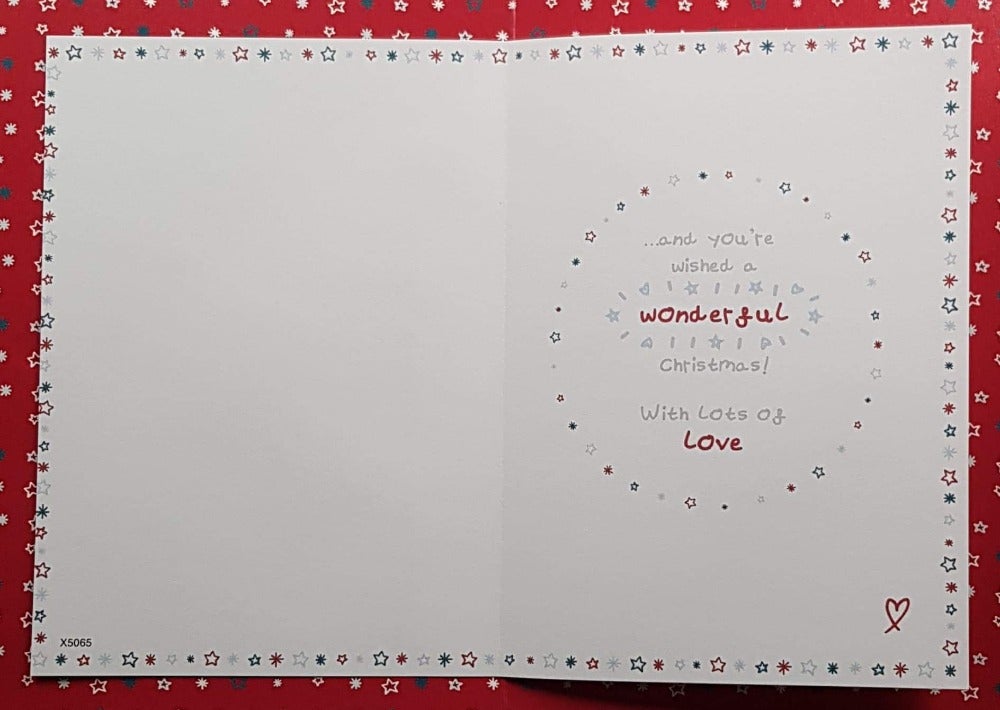 ...and you're
wished a
wonderful
Christmas!
With Lots of
Love
X5065